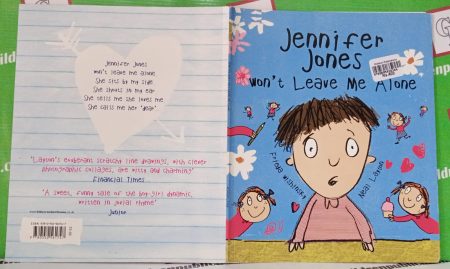 Jennifer Jones
won't leave me alone
She sits by my side
She shouts in my ear
She tells me she loves me
She calls me her 'dear'
'Layton's exuberant scratchy line drawings, with clever
photographic collages, are witty and charming'
Financial Times
'A sweet, funny tale of the boy-girl dynamic,
written in jovial rhyme'
Junior
Jennifer
Jones
Won't Leave Me Alone
Frieda Wishinsky
Neal Layton